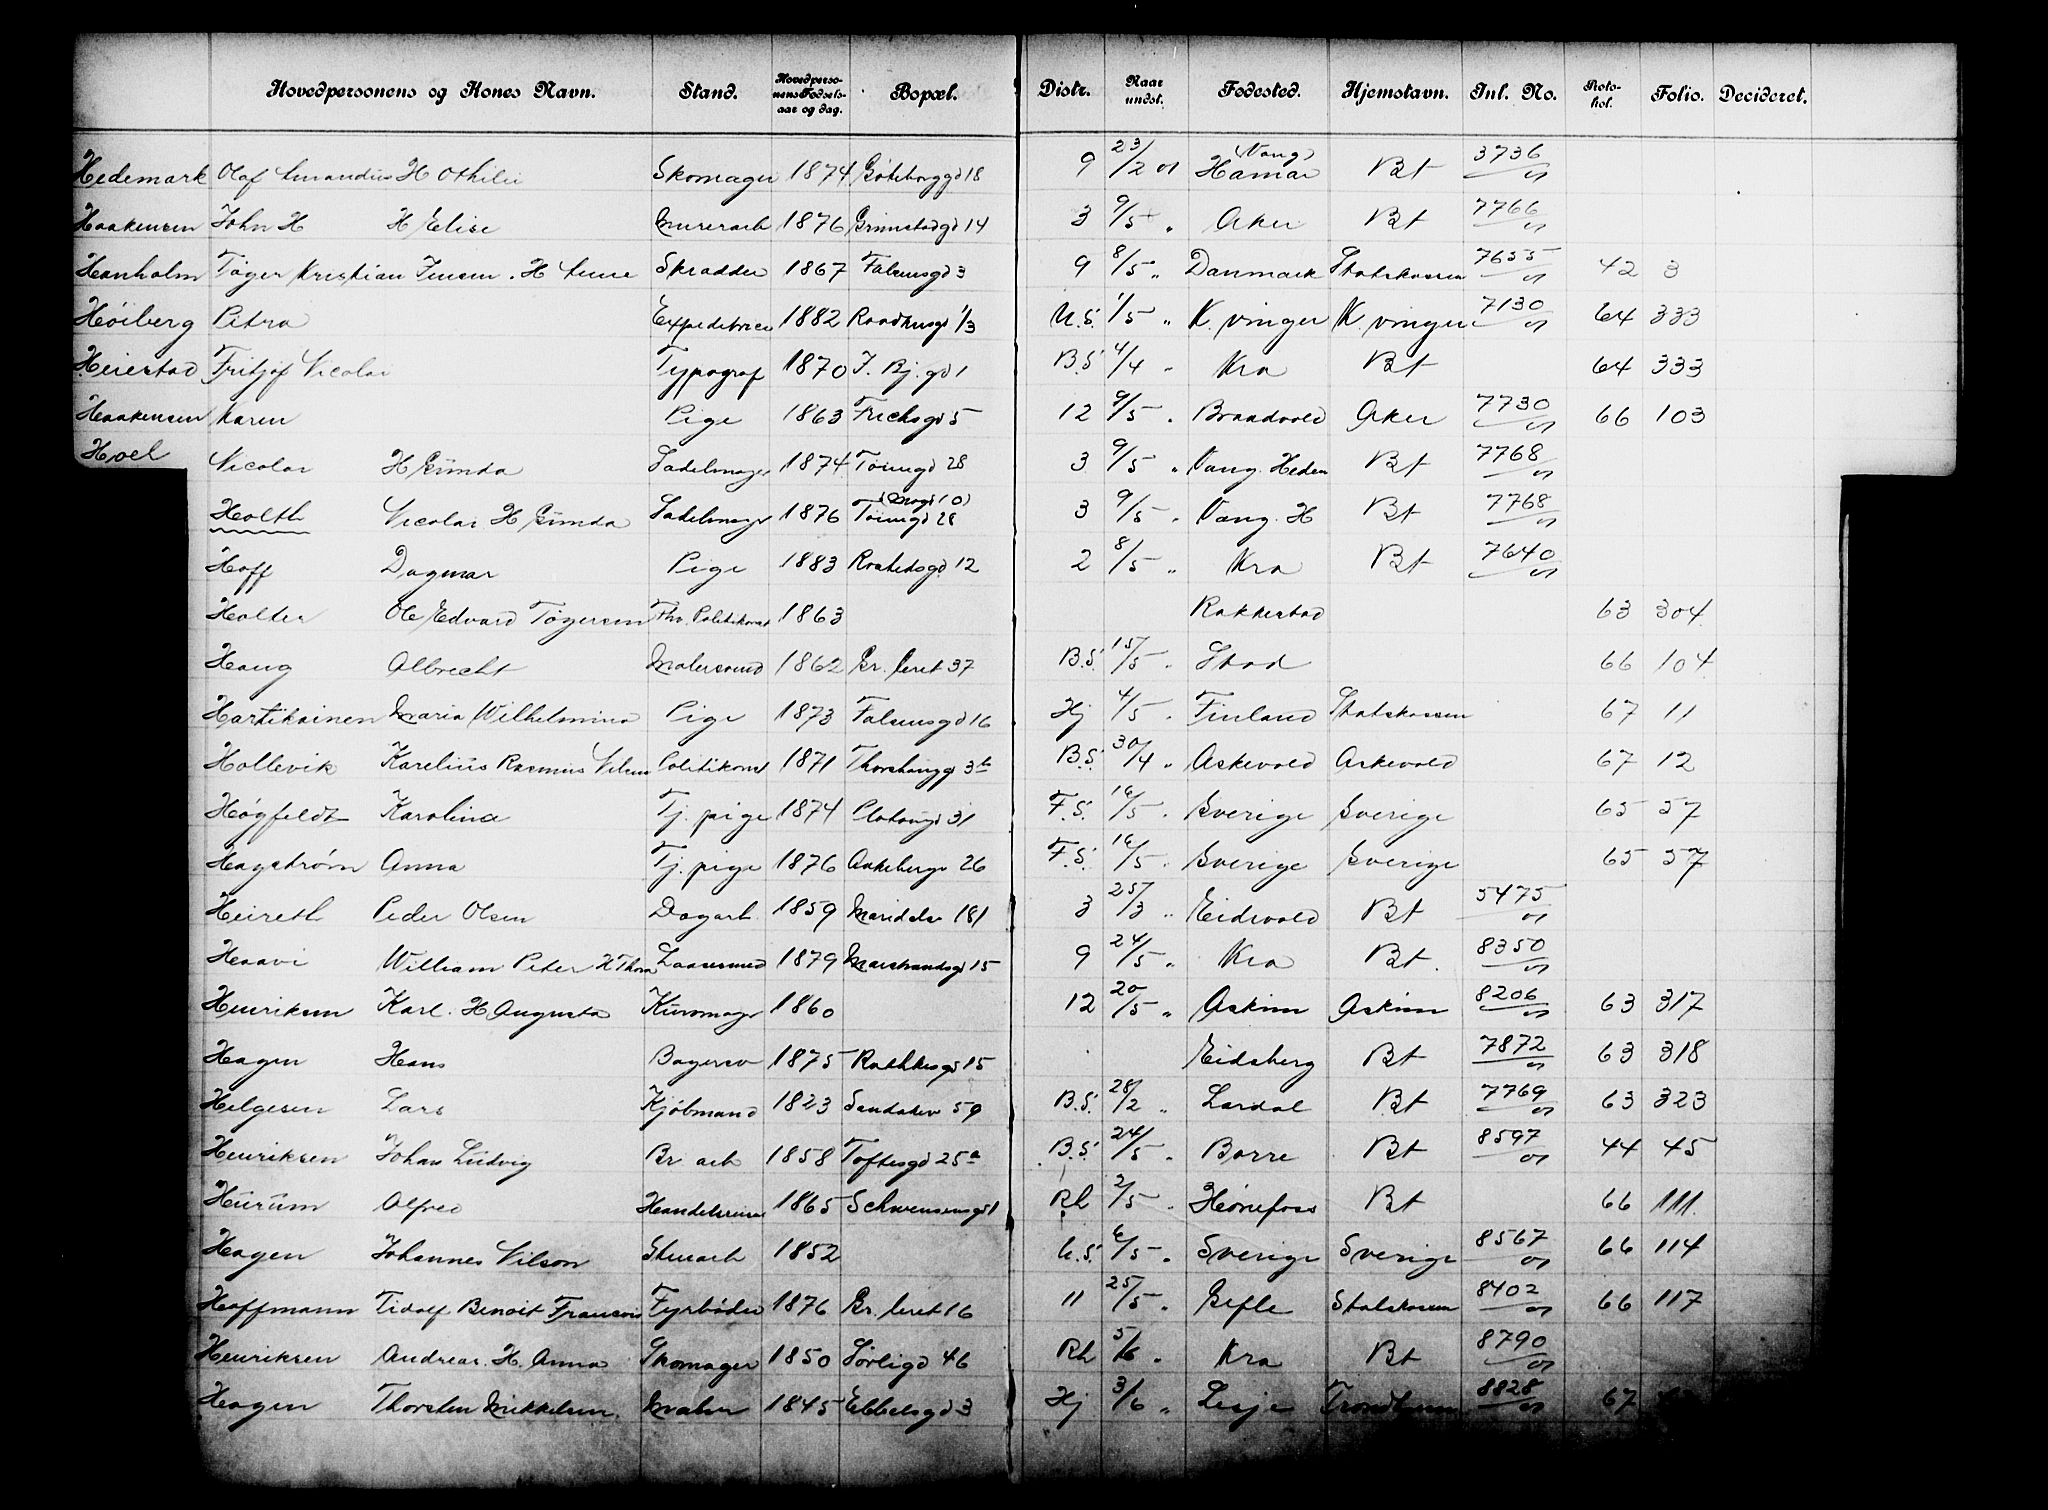 Hovedpersonens og Kones Navn. Stand. Hovedpersonens Fødselsaar og dag. Bopæl. Distr. Naar undst. Fødested. Hjemstavn. Inl. No. Protokol. Folio. Decideret.
Hedemark Olaf Amandus H Othilie Skomager 1874 Göteborggd 18 9 23/2 01 (Vang) Hamar Bt 3736/01
Haakensen John H H Elise Murerarb 1876 Grimstadgd 14 3 9/5 „ Aker Bt 7766/01
Hanholm Töger Kristian Jensen. H Anne Skrædder 1867 Falsensgd 3 9 8/5 „ Danmark Statskassen 7655/01 42 3
Höiberg Petra Expeditrice 1882 Raadhusgd 1/3 U.S. 1/5 „ K.vinger K.vinger 7130/01 64 333
Heiestad Fritjof Nicolai Typograf 1870 J. Bj. gd 1 B.S. 4/4 „ Kra Bt 64 333
Haakensen Karen Pige 1863 Frichsgd 5 12 9/5 „ Brandvold Aker 7730/01 66 103
Hoel Nicolai H Gunda Sadelmager 1874 Töiengd 28 3 9/5 „ Vang. Hedm Bt 7768/01
Holth Nicolai H Gunda Sadelmager 1876 Töiengd 28 3 9/5 „ Vang. H Bt 7768/01
Hoff Dagmar Pige 1883 Rostedsgd 12 2 8/5 „ Kra Bt 7640/01
Holter Ole Edvard Tögersen Fhv. Politikonst 1863 Rakkestad 63 304
Haug Albrecht Malersvend 1862 Gr. leret 37 B.S. 15/5 „ Stod 66 104
Hartikainen Maria Wilhelmina Pige 1873 Falsensgd 16 Hj 4/5 „ Finland Statskassen 67 11
Hollevik Karelius Rasmus Nilsen Politikonst 1871 Thorshauggd 3b B.S. 30/4 „ Askevold Askevold 67 12
Høgfeldt Karolina Tj. pige 1874 Platougd 31 F.S. 16/5 „ Sverige Sverige 65 57
Hagström Anna Tj. pige 1876 Aakebergv 26 F.S. 16/5 „ Sverige Sverige 65 57
Heireth Peder Olsen Dagarb. 1859 Maridalsv 181 3 25/3 „ Eidsvold Bt 5475/01
Haavi William Peter H Thora Laasesmed 1879 Marstrandsgd 15 9 24/5 „ Kra Bt. 8350/01
Henriksen Karl. H. Augusta Kurvmager 1860 12 20/5 „ Askim Askim 8206/01 63 317
Hagen Hans Bagersv 1875 Rathkesgd 15 Eidsberg Bt 7872/01 63 318
Helgesen Lars Kjøbmand 1823 Sandakerv 59 B.S. 28/2 „ Lardal Bt 7769/01 63 323
Henriksen Johan Ludvig Br arb 1858 Toftesgd 25a B.S. 24/5 „ Borre Bt 8597/01 44 45
Hurum Alfred Handelsreis 1865 Schwensensgd 1 Rh 2/5 „ Hønefoss Bt 66 111.
Hagen Johannes Nilson Stenarb 1852 U.S. 6/5 „ Sverige Sverige 8567/01 66 114
Hoffmann Tidolf Benoit Francois Fyrbøder 1876 Gr. leret 16 11 25/5 „ Gefle Statskassen 8402/01 66 117
Henriksen Andreas. H. Anna Skomager 1850 Sörligd 46 Rh 5/6 „ Kra Bt 8790/01
Hagen Thorsten Mikkelsen. Maler 1845 Ebbelsgd 3 Hj 3/6 „ Lesje Trondhjem 8828/01 67